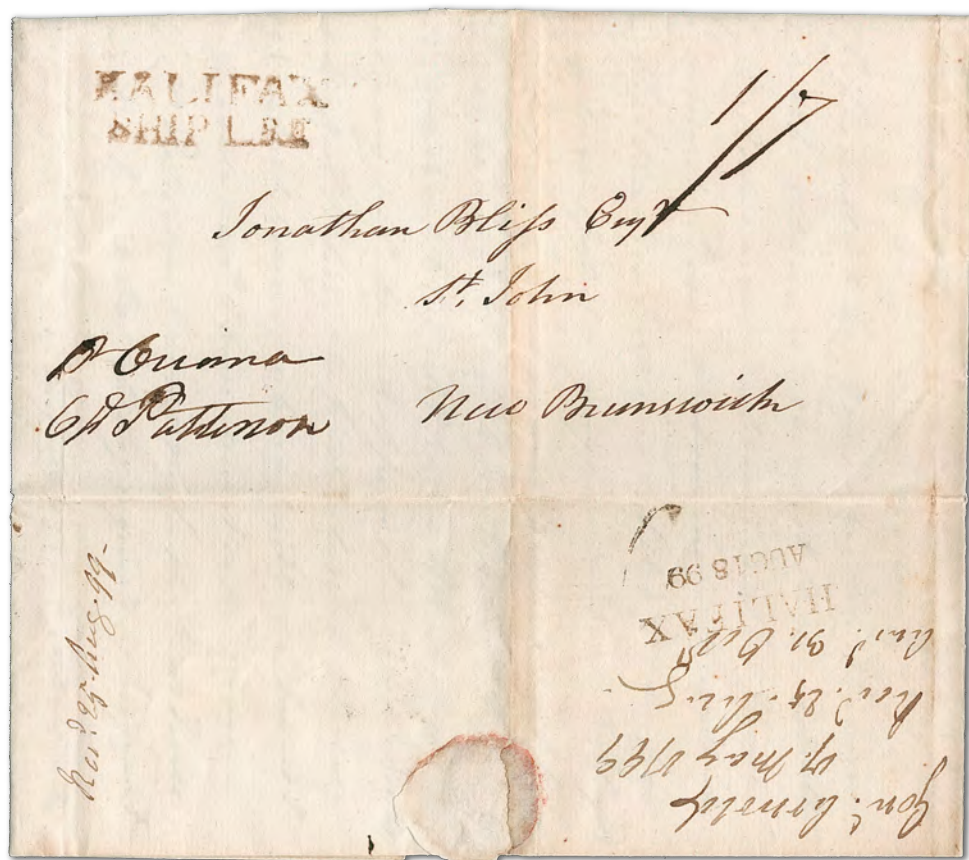 HALIFAX
SHIP LRE
1/7
Jonathan Bliss Esqr
St. John
New Brunswick
Pr Qu
Ct Patterson
Recd. 25 Aug. 99-
HALIFAX
AU 18 99
Genl. Arnold
17 May 1799
Recd. 25. Aug
Ansd. 31. Octr